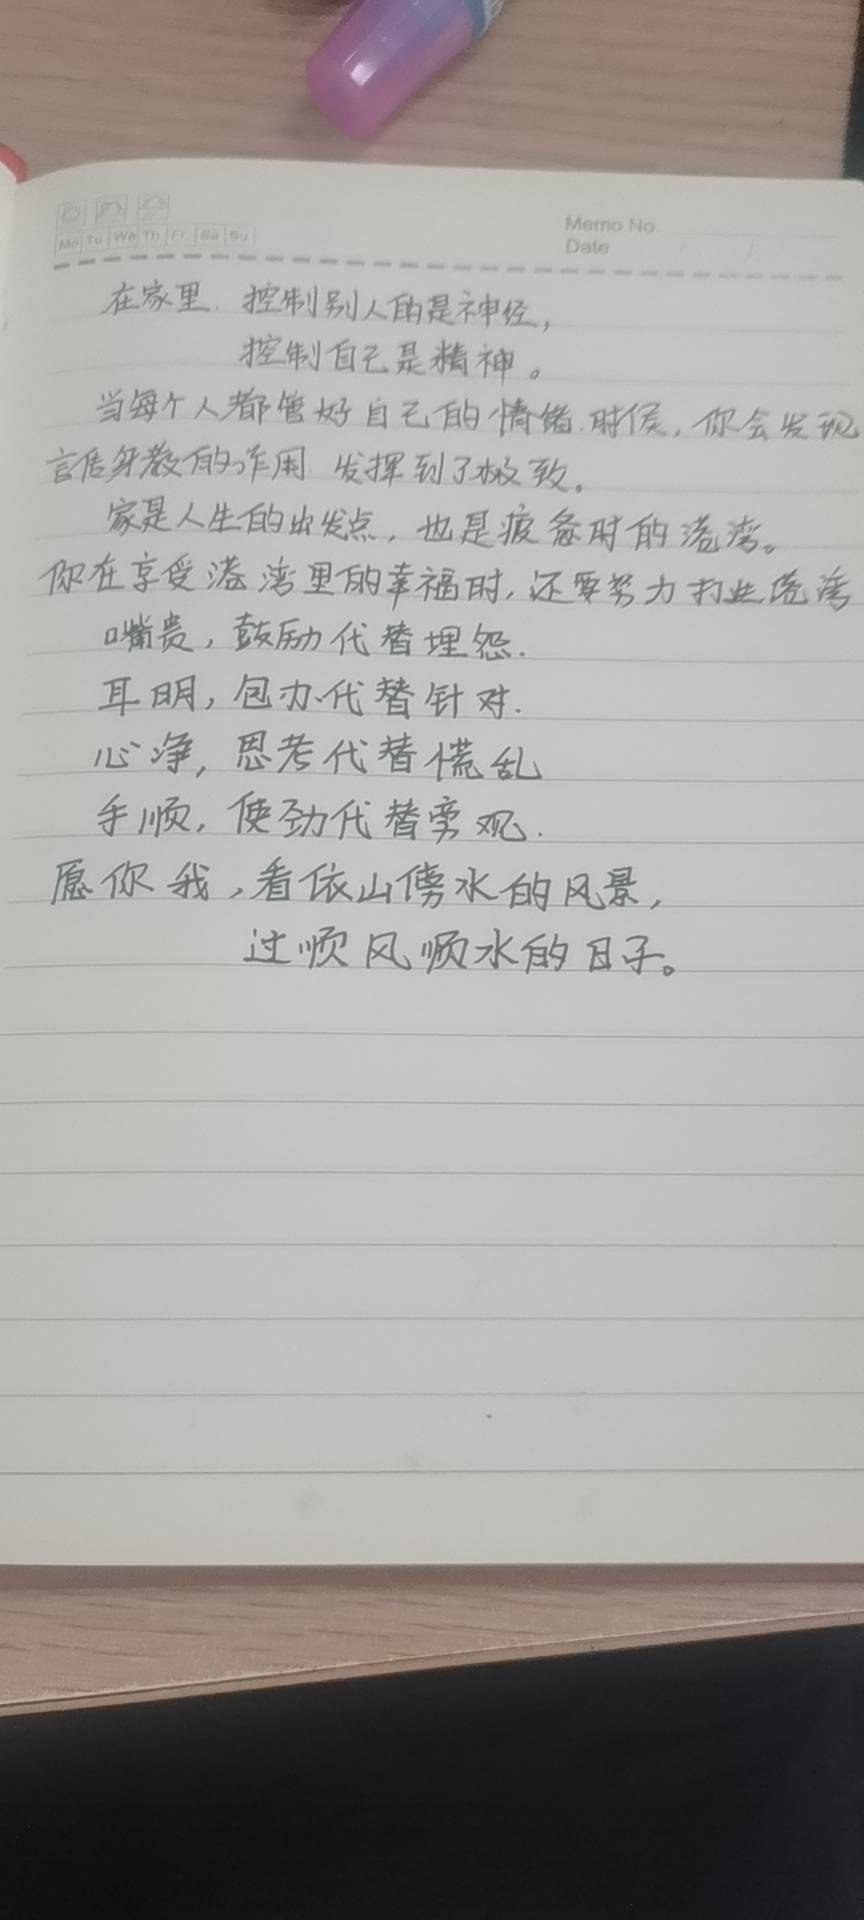 Mo Tu We Th Fr Sa Su
Memo No.
Date / /
在家里. 控制别人的是神经,
控制自己是精神。
当每个人都管好自己的情绪.时候, 你会发现
言传身教的作用. 发挥到了极致。
家是人生的出发点, 也是疲惫时的港湾。
你在享受港湾里的幸福时, 还要努力打造港湾
嘴贵, 鼓励代替埋怨.
耳明, 包办代替针对.
心净, 思考代替慌乱
手顺, 使劲代替旁观.
愿你我, 看依山傍水的风景,
过顺风顺水的日子。